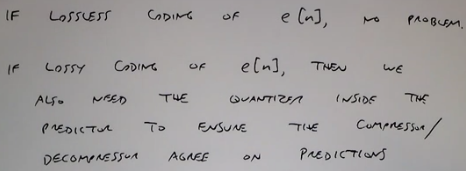 IF LOSSLESS CODING OF e[n], NO PROBLEM.
IF LOSSY CODING OF e[n], THEN WE
ALSO NEED THE QUANTIZER INSIDE THE
PREDICTOR TO ENSURE THE COMPRESSOR/
DECOMPRESSOR AGREE ON PREDICTIONS